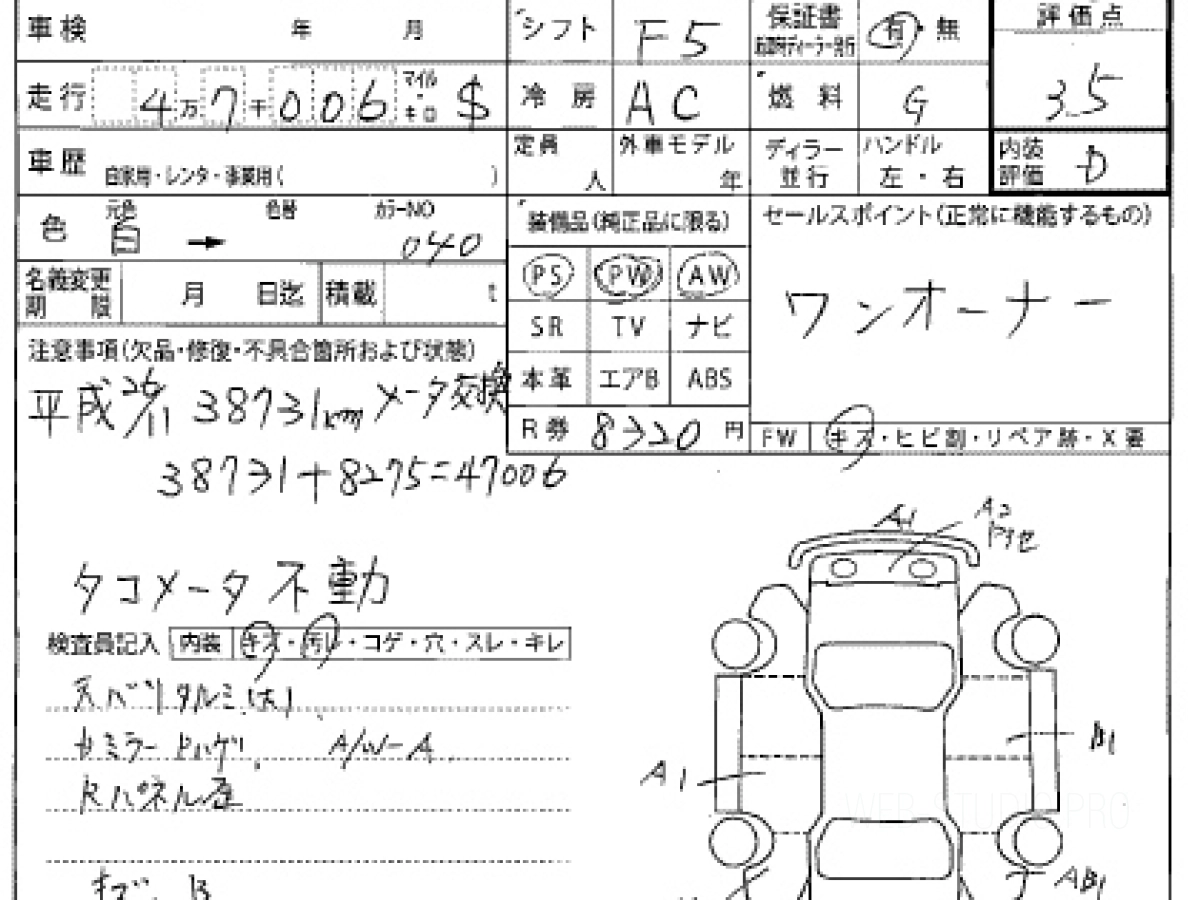 車検 年 月 シフト F5 保証書 新車時ディーラー発行 有・無 評価点
走行 4万7千006 マイル・キロ $ 冷房 AC 燃料 G 3.5
車歴 自家用・レンタ・事業用( ) 定員 人 外車モデル 年 ディラー 並行 ハンドル 左・右 内装評価 D
色 元色 白 → 色替 カラーNO 040 装備品(純正品に限る) セールスポイント(正常に機能するもの)
名義変更期限 月 日迄 積載 t PS PW AW
ワンオーナー
SR TV ナビ
注意事項(欠品・修復・不具合箇所および状態)
本革 エアB ABS
平成26/11 38731km メータ交換
R券 8320円 FW キズ・ヒビ割・リペア跡・X要
38731+8275=47006
A1 A2
タコメータ不動
検査員記入 内装 キズ・汚レ・コゲ・穴・スレ・キレ
天バリタルミ(大)
A/W-A
B1
A1
WEB STUDIO PRO
AB1